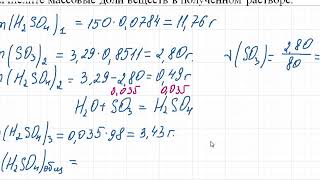 массовые доли веществ в полученном растворе.
m(H₂SO₄)₁ = 150·0,0784 = 11,76 г
m(SO₃)₂ = 3,29·0,8511 = 2,80 г.
ν(SO₃) = 2,80/80 =
m(H₂SO₄)₂ = 3,29 - 2,80 = 0,49 г
0,035 0,035
H₂O + SO₃ = H₂SO₄
m(H₂SO₄)₃ = 0,035·98 = 3,43 г.
m(H₂SO₄)общ =